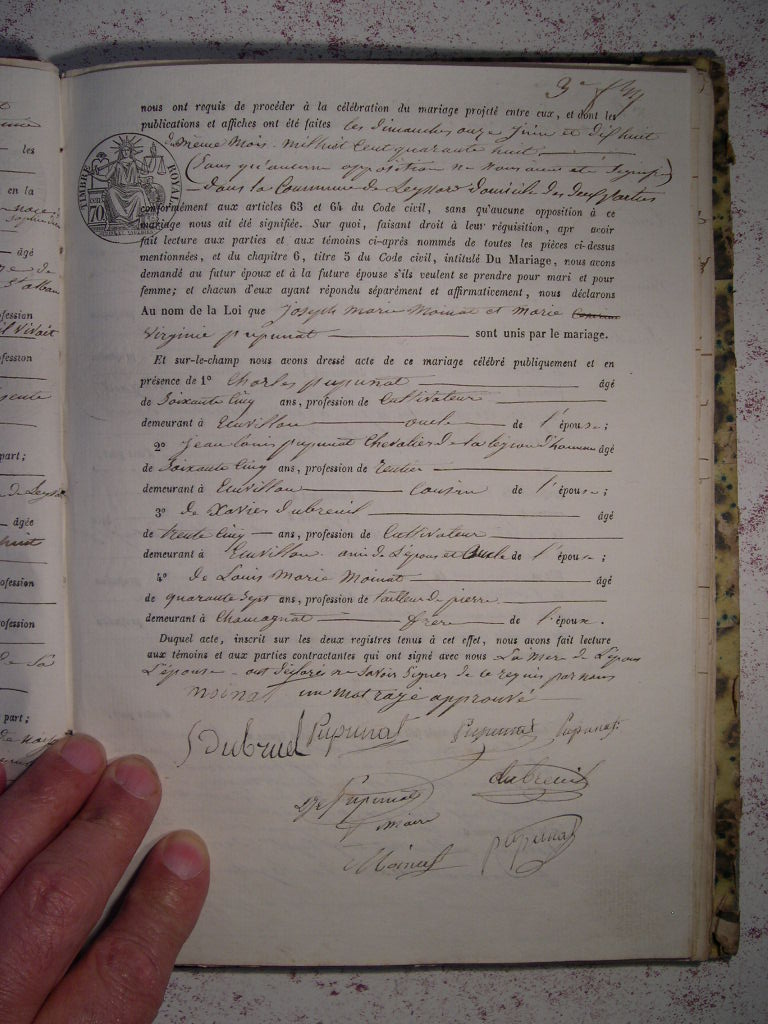 nous ont requis de procéder à la célébration du mariage projeté entre eux, et dont les
publications et affiches ont été faites les dimanches onze juin et dix huit
du meme mois mil huit cent quarante huit
(sans qu'aucune opposition ne nous ait été signifié)
dans la Commune de Leyssard domicile des deux parties
conformément aux articles 63 et 64 du Code civil, sans qu'aucune opposition à ce
mariage nous ait été signifiée. Sur quoi, faisant droit à leur réquisition, apr avoir
fait lecture aux parties et aux témoins ci-après nommés de toutes les pièces ci-dessus
mentionnées, et du chapitre 6, titre 5 du Code civil, intitulé Du Mariage, nous avons
demandé au futur époux et à la future épouse s'ils veulent se prendre pour mari et pour
femme; et chacun d'eux ayant répondu séparément et affirmativement, nous déclarons
Au nom de la Loi que Joseph Marie Moinat et Marie
Virginie pupunat sont unis par le mariage.
Et sur-le-champ nous avons dressé acte de ce mariage célébré publiquement et en
présence de 1° Charles pupunat âgé
de Soixante Cinq ans, profession de Cultivateur
demeurant à Emvillon oncle de l'épouse;
2° Jean louis pupunat Chevalier de la légion d'honneur âgé
de Soixante Cinq ans, profession de rentier
demeurant à Emvillon Cousin de l'épouse;
3° de Xavier dubreuil âgé
de trente Cinq ans, profession de Cultivateur
demeurant à Emvillon ami de l'époux et de l'épouse;
4° de Louis Marie Moinat âgé
de quarante Sept ans, profession de tailleur de pierre
demeurant à Chamagnat frère de l'époux.
Duquel acte, inscrit sur les deux registres tenus à cet effet, nous avons fait lecture
aux témoins et aux parties contractantes qui ont signé avec nous La mere de l'époux
L'épouse ont déclarés ne Savoir Signer de ce requis par nous
moinat un mot rayé approuvé
Dubruel Pupunat Pupunat Pupunat
Pupunat dubreuil
maire
Moinat pupunat
TIMBRE ROYAL
70
les
en la
âgé
ofession
ofession
part;
âgée
ofession
ofession
part;